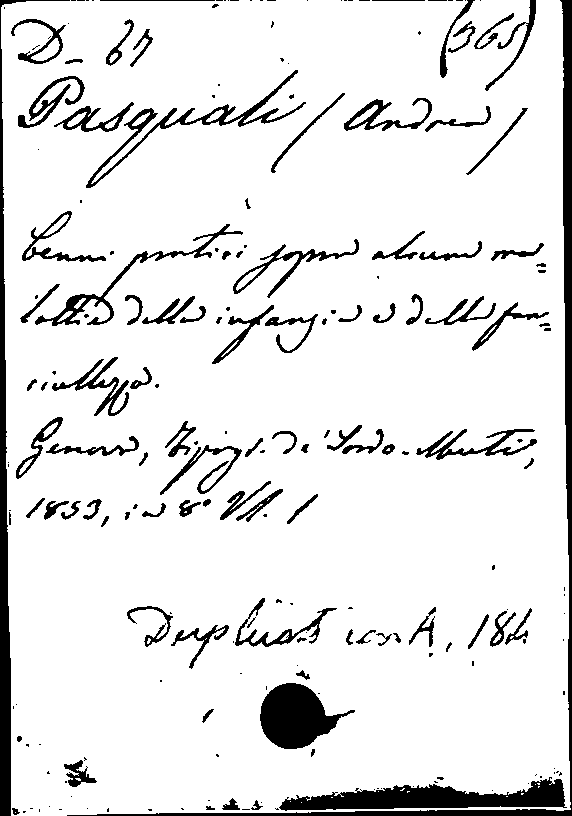 D- 67 (365)
Pasquali (Andrea)
Cenni pratici sopra alcune ma=
lattie della infanzia e della fan=
ciullezza.
Genova, Tipogr. de' Sordo-Muti,
1853, in 8° Vl. 1
Duplicato con A, 184